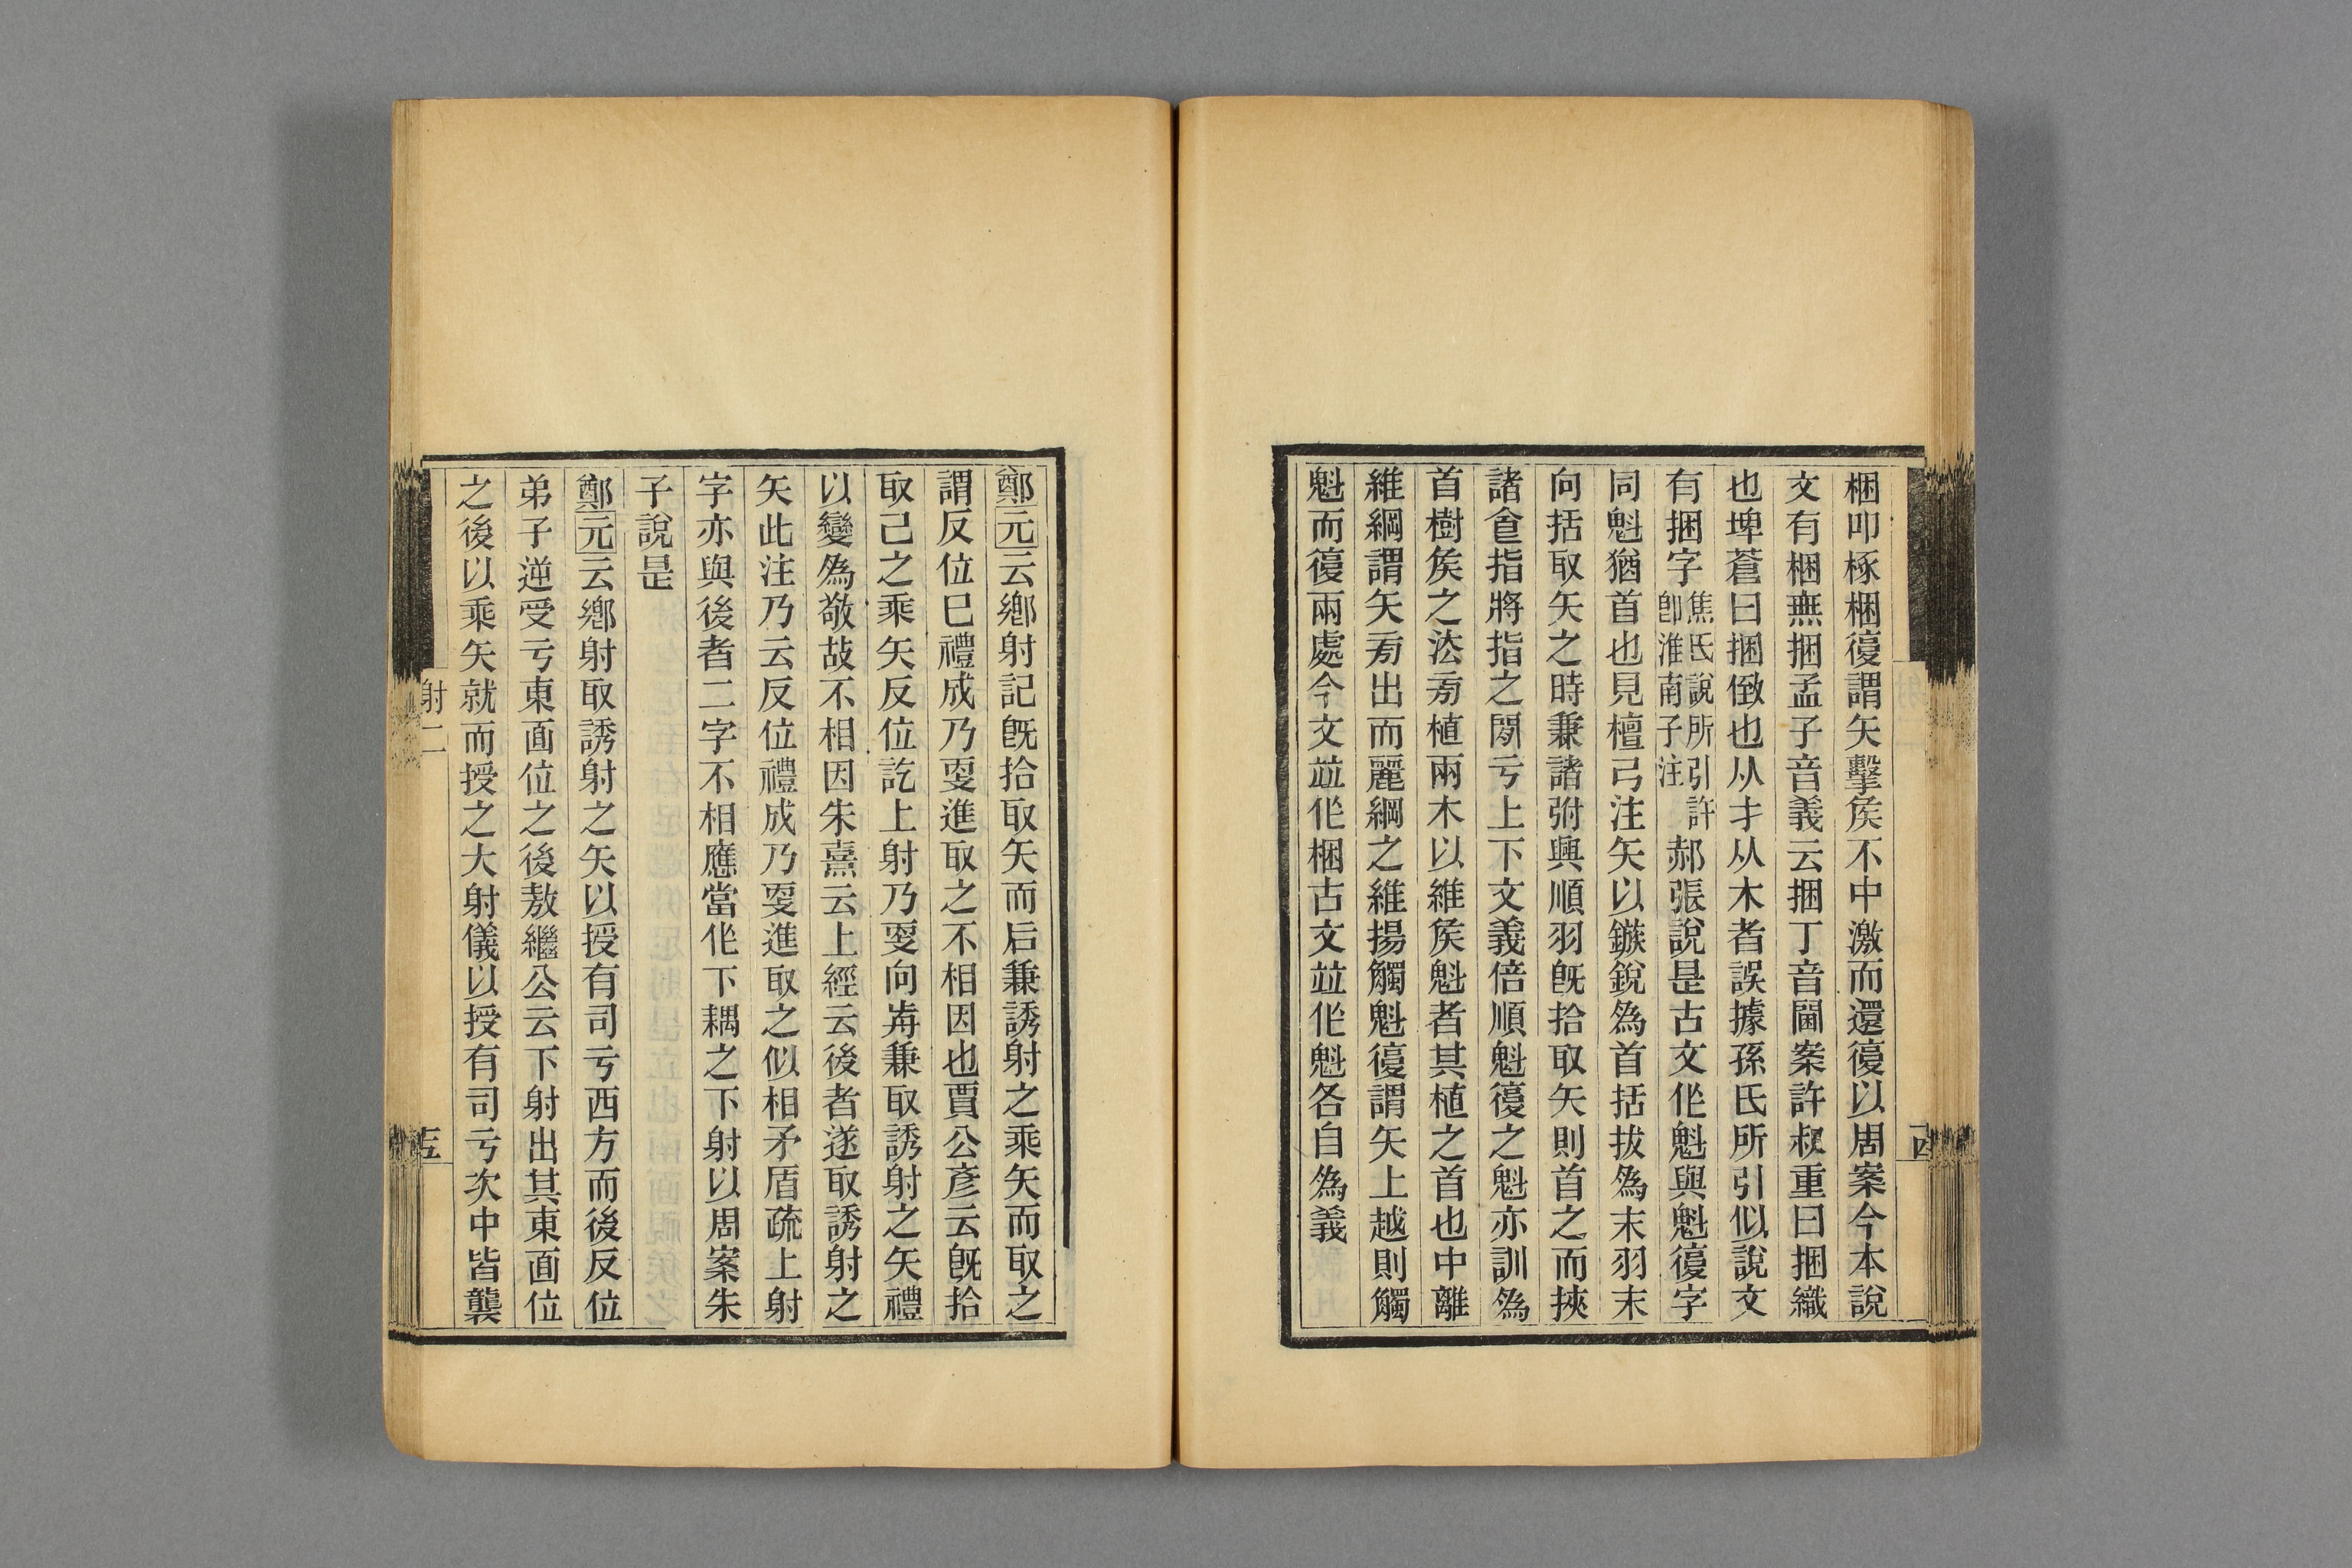 梱叩椓梱復謂矢擊矦不中激而還復以周案今本說
文有梱無捆孟子音義云捆丁音閫案許叔重曰捆織
也埤蒼曰捆㩁也从才从木者誤據孫氏所引似說文
有捆字焦氏說所引許卽淮南子注郝張說是古文作魁與魁復字
同魁猶首也見檀弓注矢以鏃銳為首括拔為末羽末
向括取矢之時兼諸弣興順羽旣拾取矢則首之而挾
諸食指將指之閒亏上下文義倍順魁復之魁亦訓為
首樹矦之法㫄植兩木以維矦魁者其植之首也中離
維綱謂矢㫄出而麗綱之維揚觸魁復謂矢上越則觸
魁而復兩處今文竝作梱古文竝作魁各自為義
鄭元云鄉射記旣拾取矢而后兼誘射之乘矢而取之
謂反位巳禮成乃㪅進取之不相因也賈公彥云旣拾
取己之乘矢反位訖上射乃㪅向歬兼取誘射之矢禮
以變為敬故不相因朱熹云上經云後者遂取誘射之
矢此注乃云反位禮成乃㪅進取之似相矛盾疏上射
字亦與後者二字不相應當作下耦之下射以周案朱
子說是
鄭元云鄉射取誘射之矢以授有司亏西方而後反位
弟子逆受亏東面位之後敖繼公云下射出其東面位
之後以乘矢就而授之大射儀以授有司亏次中皆襲
射二
五
四